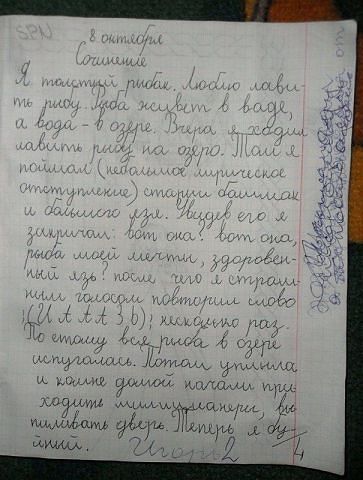 SPN
8 октября
Сочинение
Я толстый рыбак. Люблю лави-
ть рыбу. Рыба живет в ваде,
а вода - в озере. Вчера я ходил
лавить рыбу на озеро. Там я
поймал (небольшое лирическое
отступление) старый башмак
и бальшого язя. Увидев его я
закричал: вот она! вот она,
рыба моей мечты, здоровен-
ный язь! после чего я страш-
ным голосом повторил слово
;(И А А А З, Ь); несколько раз.
По етому вся рыба в озере
испугалась. Потом уплыла
и комне домой начали при
ходить милицианеры, вы
пиливать дверь. Теперь я бу
йный.
Игорь 2
4